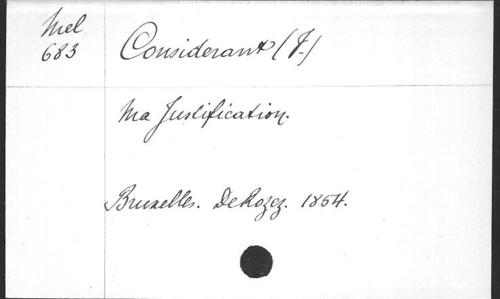 Mel
683
Considerant (J.)
Ma Justification.
Bruxelles. De Rozez. 1854.